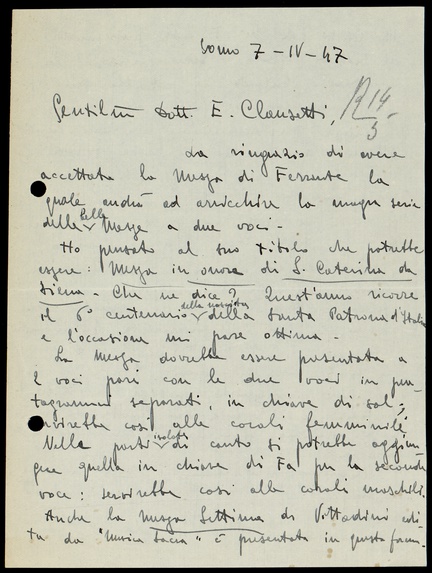 Como 7-IV-47
R 14/3
Gentilm Dott. E. Clausetti,
La ringrazio di avere
accettata la Messa di Ferrante la
quale andrà ad arricchire la magra serie
delle belle Messe a due voci -
Ho pensato al suo titolo che potrebbe
essere: Messa in onore di S. Caterina da
Siena. Che ne dice? Quest'anno ricorre
il 6° centenario della nascita della Santa Patrona d'Italia
e l'occasione mi pare ottima.
La Messa dovrebbe essere presentata a
2 voci pari con le due voci in pen-
tagrammi separati, in chiave di sol;
servirebbe così alle corali femminili.
Nelle parti isolate di canto si potrebbe aggiun-
gere quella in chiave di Fa per la seconda
voce: servirebbe così alle corali maschili.
Anche la Messa Settima di Vittadini edi-
ta da "Musica Sacra" è presentata in questa form-